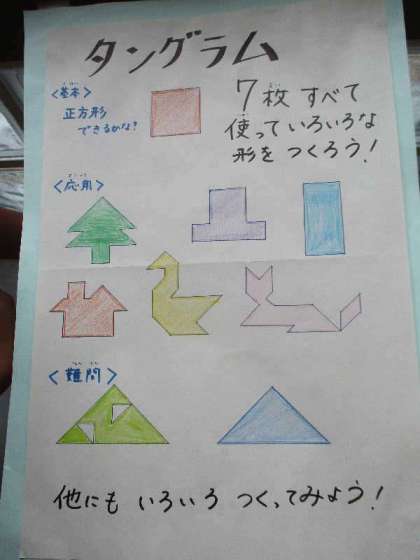 タングラム
<基本>
正方形
できるかな?
7枚 すべて
使っていろいろな
形を つくろう!
<応用>
<難問>
他にも いろいろ つくってみよう!